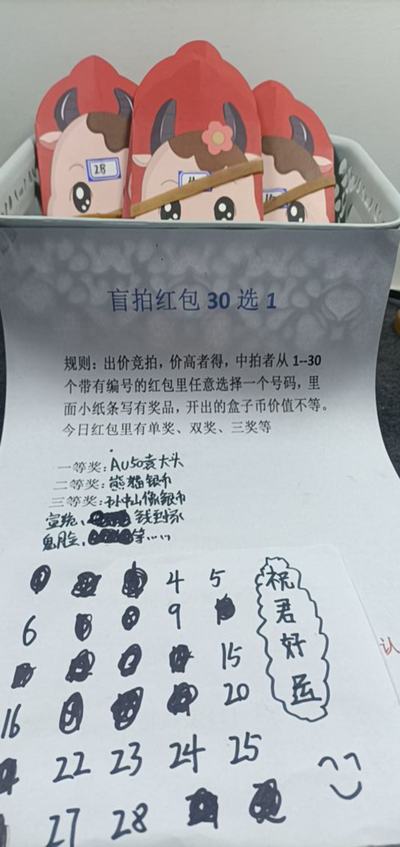 28
盲拍红包 30 选 1
规则：出价竞拍，价高者得，中拍者从 1--30
个带有编号的红包里任意选择一个号码，里
面小纸条写有奖品，开出的盒子币价值不等。
今日红包里有单奖、双奖、三奖等
一等奖：AU50袁大头
二等奖：熊猫银币
三等奖：孙中山像银币
宣统、钱到家
鬼脸、等……
4 5
6 9
15
16 20
22 23 24 25
27 28
祝君好运
认